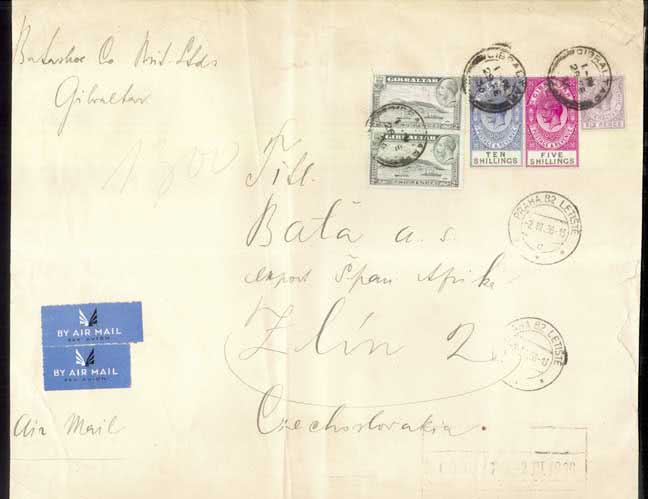 Batashoe Co Brit. Ltd
Gibraltar
GIBRALTAR
GIBRALTAR
TEN
SHILLINGS
POSTAGE & REVENUE
FIVE
SHILLINGS
SIX PENCE
GIBRALTAR
GIBRALTAR
Titl.
Baťa a. s.
export Špan Afrika
Zlín 2
Czechoslovakia.
PRAHA 82 LETIŠTĚ
PRAHA 82 LETIŠTĚ
BY AIR MAIL
PAR AVION
BY AIR MAIL
PAR AVION
Air Mail